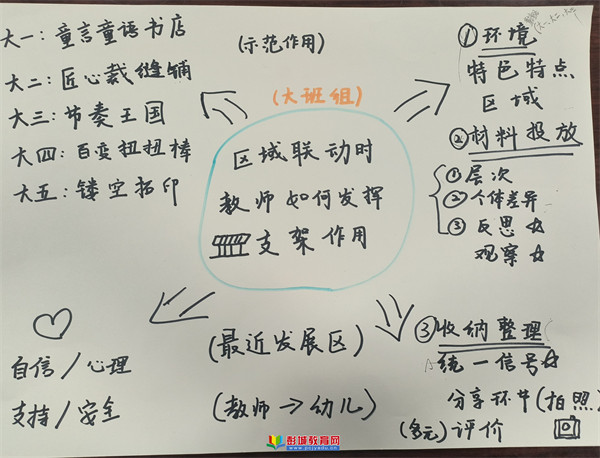 大一：童言童语书店
大二：匠心裁缝铺
大三：节奏王国
大四：百变扭扭棒
大五：镂空拓印
(示范作用)
(大班组)
区域联动时
教师如何发挥
支架作用
①环境
特色特点
区域
②材料投放
①层次
②个体差异
③反思☆
观察☆
③收纳整理
统一信号☆
分享环节(拍照)
(多元)评价
自信/心理
支持/安全
(最近发展区)
(教师→幼儿)
彭城教育网